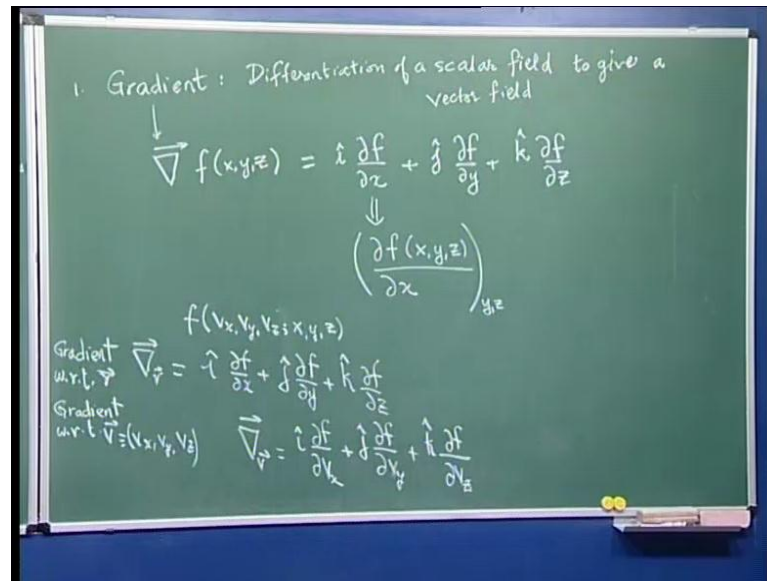 1. Gradient : Differentiation of a scalar field to give a
vector field
↓
∇⃗ f(x,y,z) = î ∂f/∂x + ĵ ∂f/∂y + k̂ ∂f/∂z
⇓
(∂f(x,y,z)/∂x)_{y,z}
f(Vx, Vy, Vz; x, y, z)
Gradient
w.r.t. r⃗ ∇⃗_r⃗ = î ∂f/∂x + ĵ ∂f/∂y + k̂ ∂f/∂z
Gradient
w.r.t. V⃗ ≡ (Vx, Vy, Vz) ∇⃗_v⃗ = î ∂f/∂Vx + ĵ ∂f/∂Vy + k̂ ∂f/∂Vz